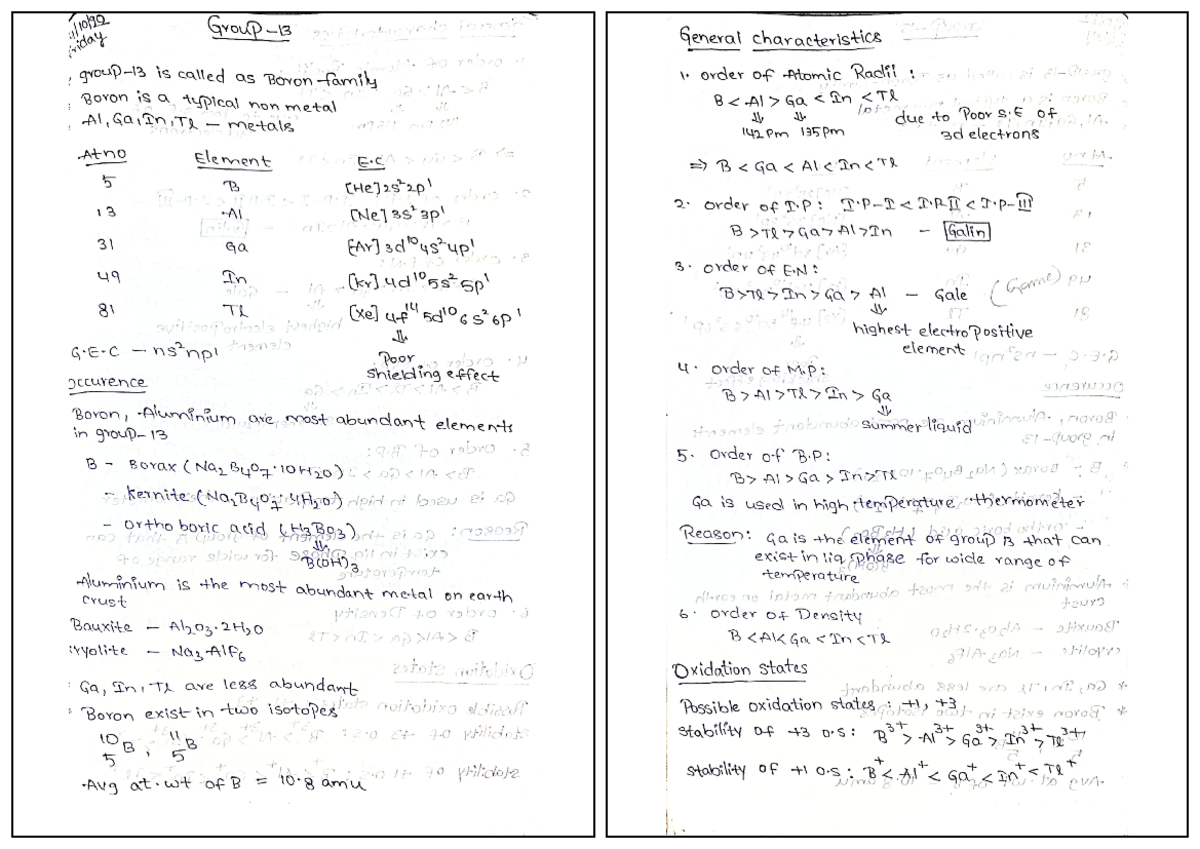 /10/92
Friday
Group-13
group-13 is called as Boron family
Boron is a typical non metal
Al, Ga, In, Tl – metals
At no Element E.C
5 B [He] 2s² 2p¹
13 Al [Ne] 3s² 3p¹
31 Ga [Ar] 3d¹⁰ 4s² 4p¹
49 In [kr] 4d¹⁰ 5s² 5p¹
81 Tl [Xe] 4f¹⁴ 5d¹⁰ 6s² 6p¹
⇓
Poor
shielding effect
G.E.C – ns² np¹
occurence
Boron, Aluminium are most abundant elements
in group-13
B – Borax (Na₂B₄O₇·10H₂O)
– kernite (Na₂B₄O₇·4H₂O)
– ortho boric acid (H₃BO₃)
⇓
B(OH)₃
Aluminium is the most abundant metal on earth
crust
Bauxite – Al₂O₃·2H₂O
cryolite – Na₃AlF₆
Ga, In, Tl are less abundant
Boron exist in two isotopes
¹⁰₅B, ¹¹₅B
Avg at.wt of B = 10.8 amu
General characteristics
1. order of Atomic Radii :
B < Al > Ga < In < Tl
⇓ ⇓
142pm 135pm
due to Poor S.E of
3d electrons
⇒ B < Ga < Al < In < Tl
2. order of I.P : I.P-I < I.P-II < I.P-III
B > Tl > Ga > Al > In – Galin
3. order of E.N :
B > Tl > In > Ga > Al – Gale (Game)
⇓
highest electropositive
element
4. order of M.P :
B > Al > Tl > In > Ga
⇓
summer liquid
5. order of B.P :
B > Al > Ga > In > Tl
Ga is used in high temperature thermometer
Reason : Ga is the element of group B that can
exist in liq phase for wide range of
temperature
6. order of Density
B < Al < Ga < In < Tl
Oxidation states
Possible oxidation states : +1, +3
stability of +3 o.s : B³⁺ > Al³⁺ > Ga³⁺ > In³⁺ > Tl³⁺
stability of +1 o.s : B⁺ < Al⁺ < Ga⁺ < In⁺ < Tl⁺